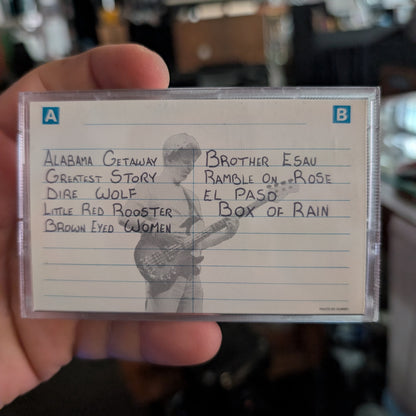 A B
ALABAMA GETAWAY
GREATEST STORY
DIRE WOLF
LITTLE RED ROOSTER
BROWN EYED WOMEN
BROTHER ESAU
RAMBLE ON ROSE
EL PASO
BOX OF RAIN